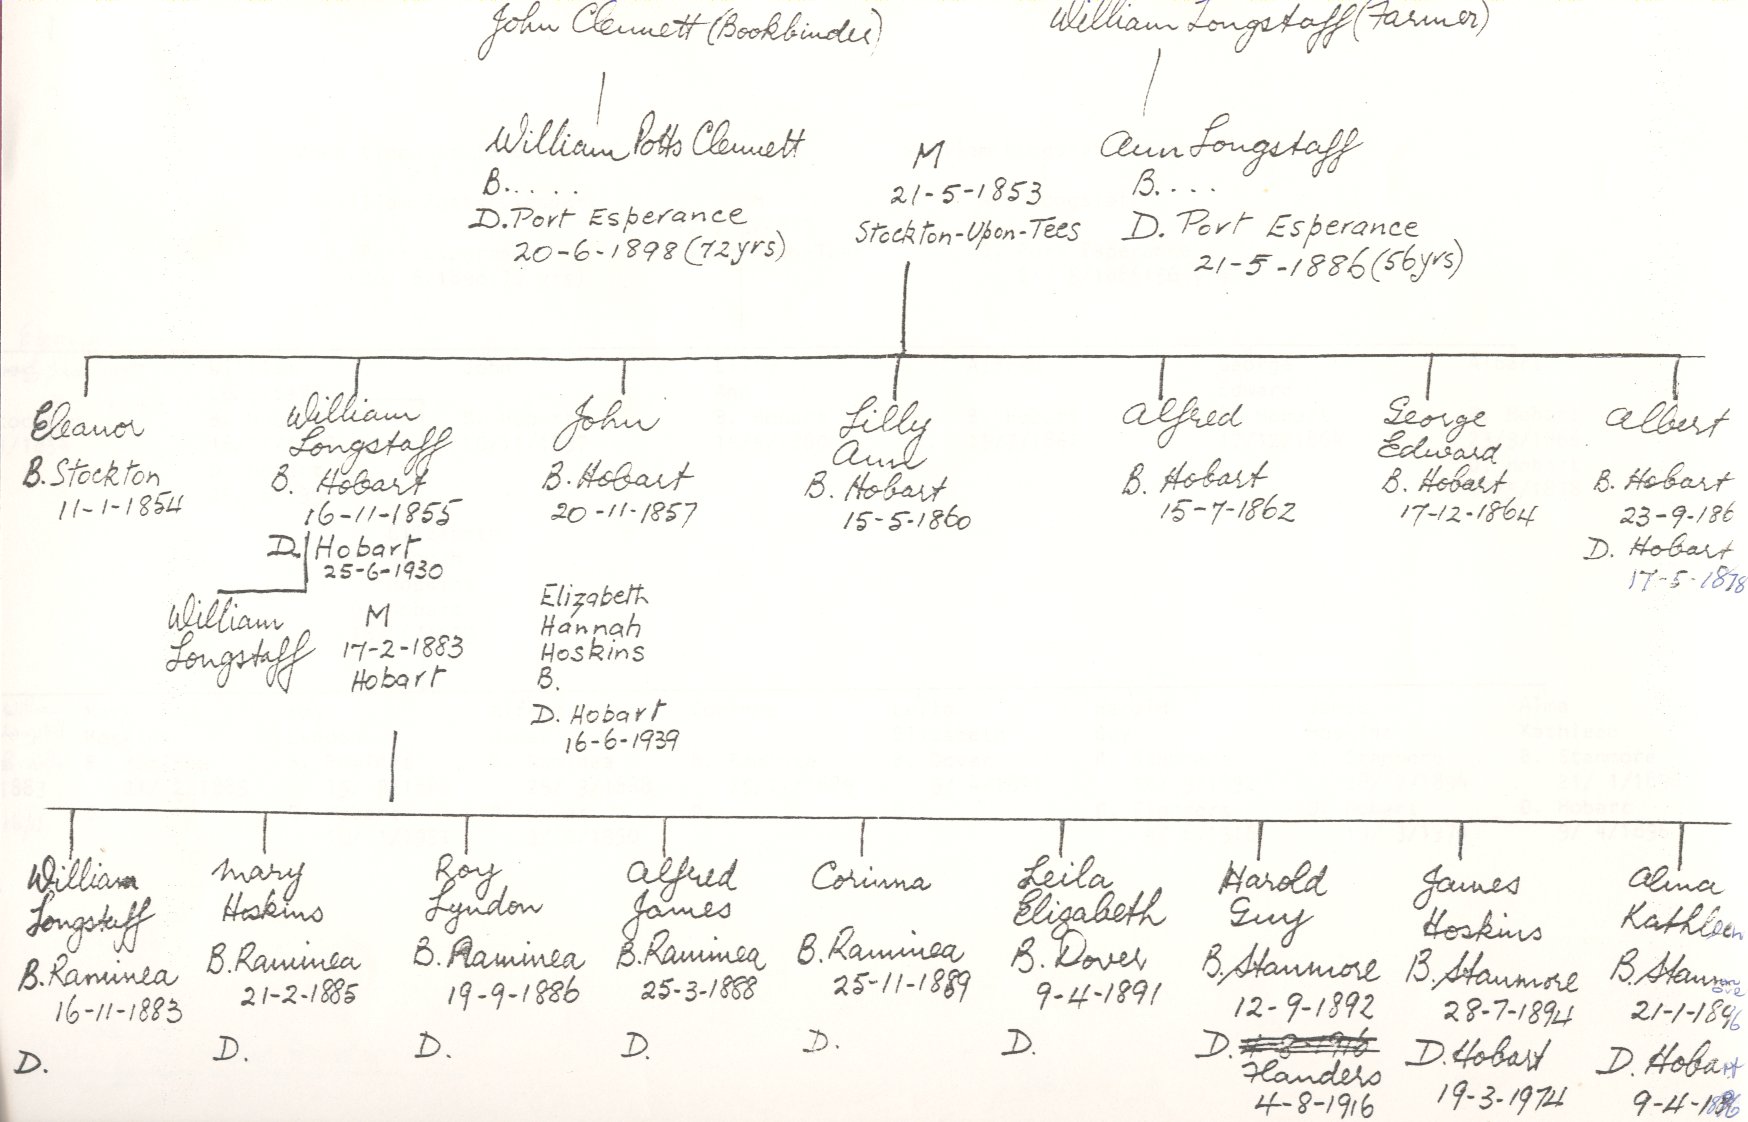 John Clennett (Bookbinder)
William Longstaff (Farmer)
William Potts Clennett
B. . . . .
D. Port Esperance
20-6-1898 (72yrs)
M
21-5-1853
Stockton-Upon-Tees
Ann Longstaff
B. . . .
D. Port Esperance
21-5-1886 (56yrs)
Eleanor
B. Stockton
11-1-1854
William
Longstaff
B. Hobart
16-11-1855
D. Hobart
25-6-1930
John
B. Hobart
20-11-1857
Lilly
Ann
B. Hobart
15-5-1860
Alfred
B. Hobart
15-7-1862
George
Edward
B. Hobart
17-12-1864
Albert
B. Hobart
23-9-186
D. Hobart
17-5-1878
William
Longstaff
M
17-2-1883
Hobart
Elizabeth
Hannah
Hoskins
B.
D. Hobart
16-6-1939
William
Longstaff
B. Raminea
16-11-1883
D.
Mary
Hoskins
B. Raminea
21-2-1885
D.
Roy
Lyndon
B. Raminea
19-9-1886
D.
Alfred
James
B. Raminea
25-3-1888
D.
Corinna
B. Raminea
25-11-1889
D.
Leila
Elizabeth
B. Dover
9-4-1891
D.
Harold
Guy
B. Stanmore
12-9-1892
D.
Flanders
4-8-1916
James
Hoskins
B. Stanmore
28-7-1894
D. Hobart
19-3-1974
Alma
Kathleen
B. Stanmore
21-1-1896
D. Hobart
9-4-1896